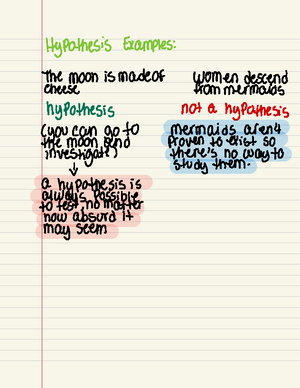 Hypothesis Examples:
The moon is made of
cheese
hypothesis
(you can go to
the moon and
investigate)
a hypothesis is
always possible
to test, no matter
how absurd it
may seem
women descend
from mermaids
not a hypothesis
mermaids aren't
proven to exist so
there's no way to
study them.